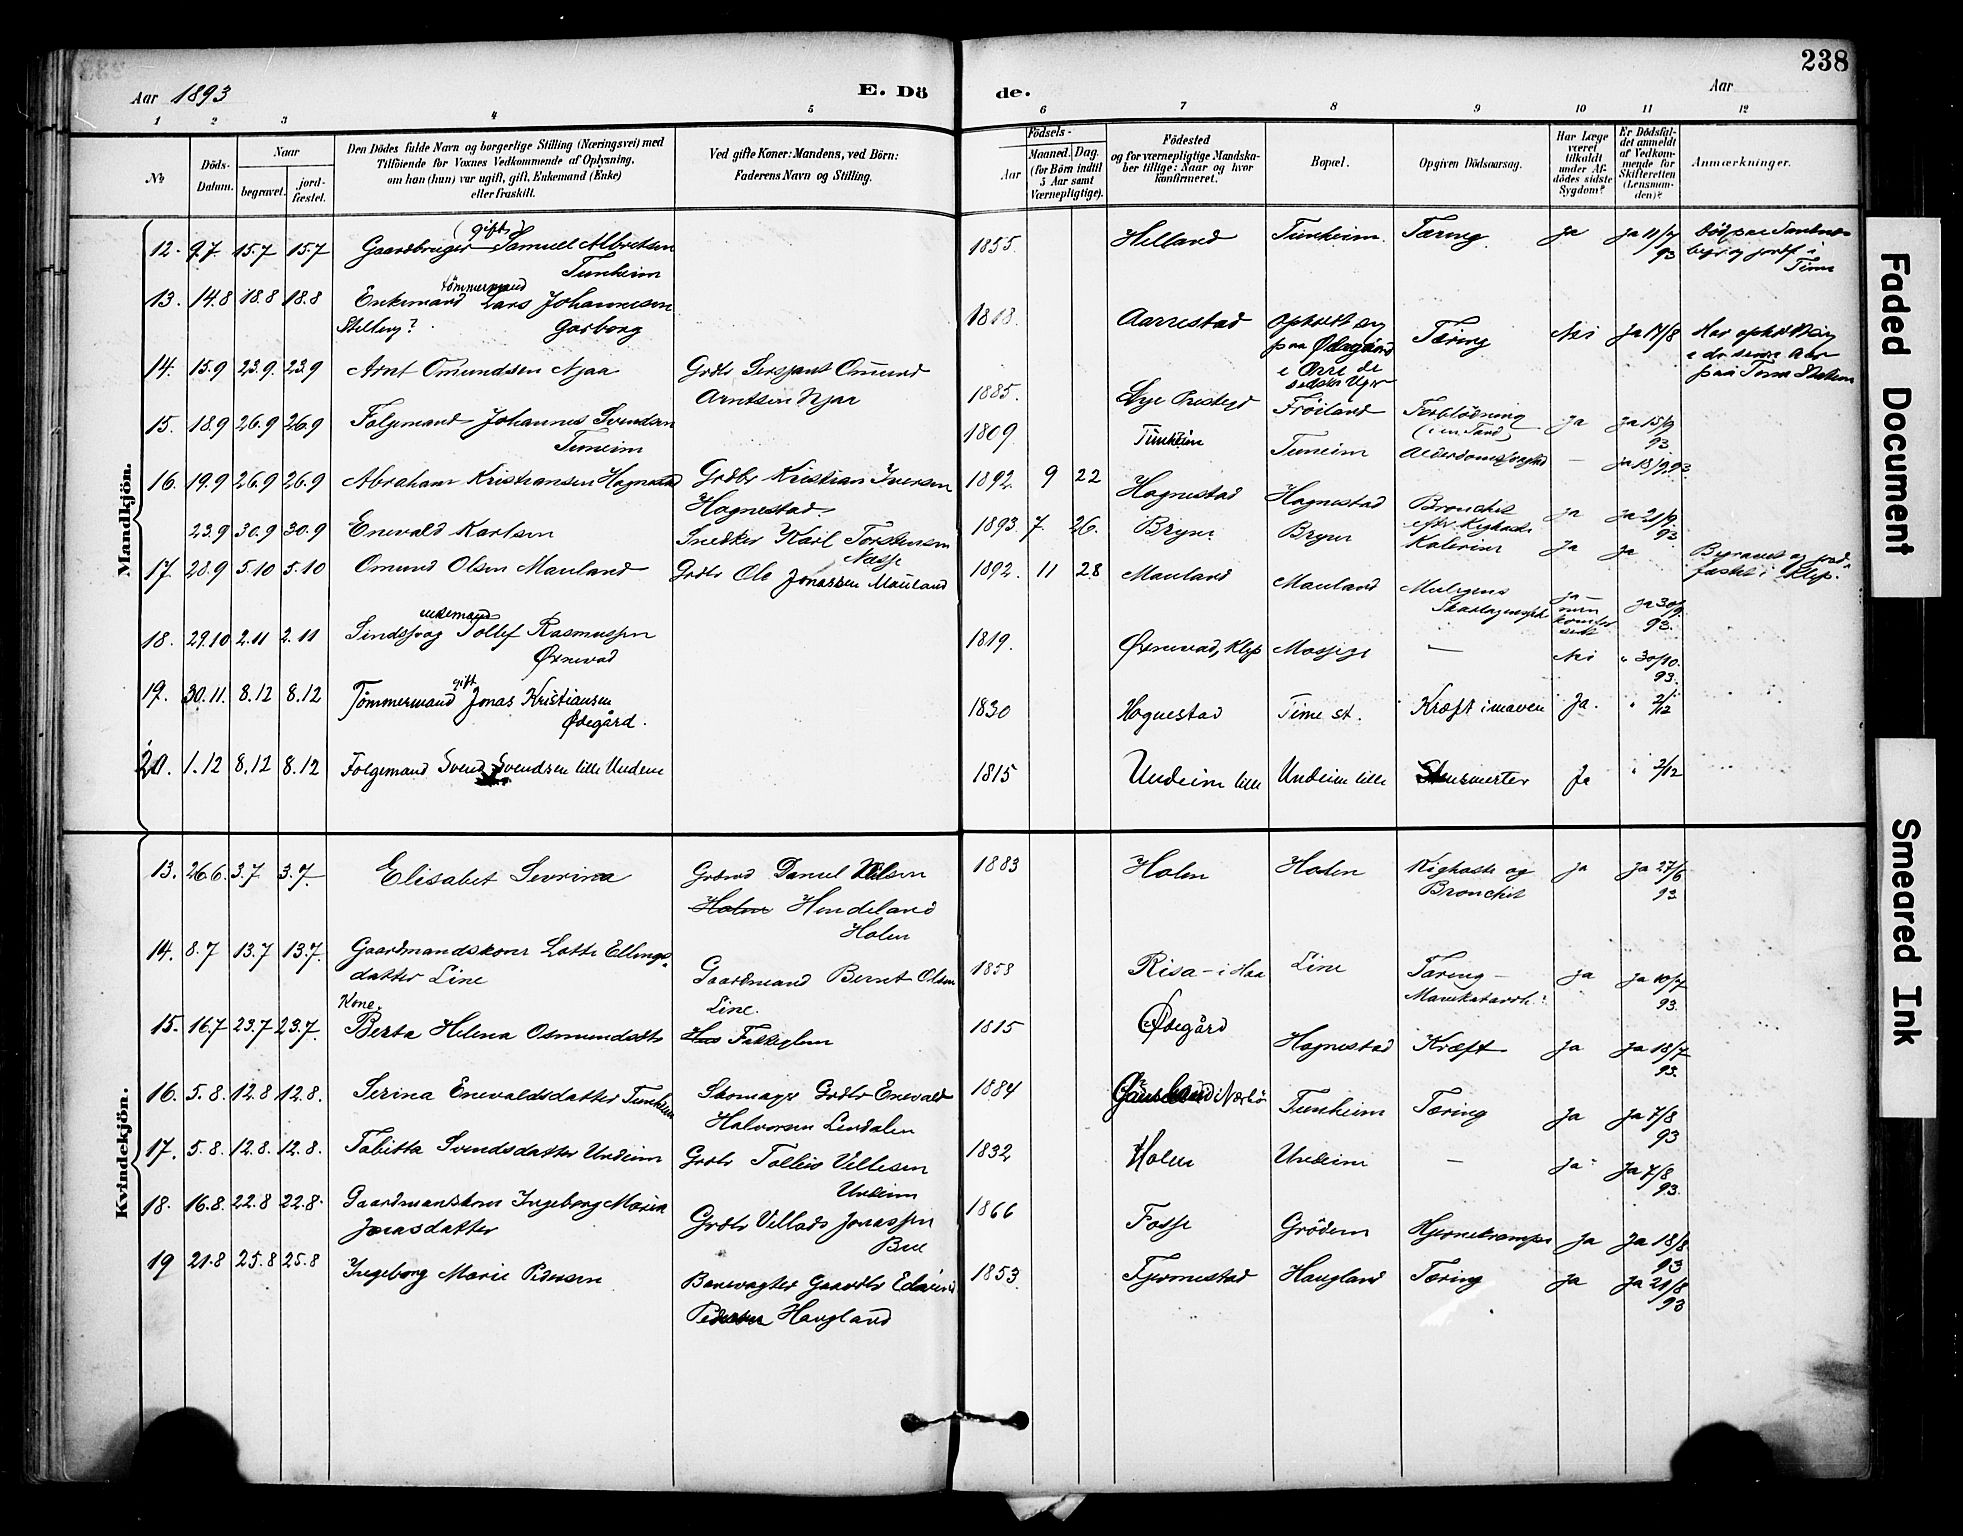 238
Aar 1893
E. Dö
de.
Aar
1 2 3 4 5 6 7 8 9 10 11 12
No
Döds-Datum.
Naar
begravet.
jord-fæstet.
Den Dödes fulde Navn og borgerlige Stilling (Næringsvei) med
Tilföiende for Voxnes Vedkommende af Oplysning,
om han (hun) var ugift, gift, Enkemand (Enke)
eller fraskilt.
Ved gifte Koner: Mandens, ved Börn:
Faderens Navn og Stilling.
Födsels-
Aar
Maaned. Dag.
(for Börn indtil
5 Aar samt
Værnepligtige).
Födested
og for værnepligtige Mandska-
ber tillige: Naar og hvor
konfirmeret.
Bopæl.
Opgiven Dödsaarsag.
Har Læge
været
tilkaldt
under Af-
dödes sidste
Sygdom?
Er Dödsfal-
det anmeldt
af Vedkom-
mende for
Skifteretten
(Lensman-
den)?
Anmærkninger.
Mandkjön.
12. 9.7 15.7 15.7 Gaardbruger (gift) Samuel Albretsen
Tunheim
1855. Helland Tunheim. Tæring. ja ja 11/7
93
13. 14.8 18.8 18.8 Enkemand tömmermand Lars Johannesen
Stilling? Garborg
1818. Aarrestad Opholdt sig
paa Ødegaard
Tæring Nei Ja 17/8 Har opholdt sig
e de senere Aar
paa Time Station
14. 15.9 23.9. 23.9 Arnt Omundsen Njaa Grdbr Sersjant Omund
Arntsen Njaa
1885. Lye Prestegd Fröiland Forblödning
(i en Tand)
ja ja 15/9
93
15. 18.9 26.9 26.9 Folgemand Johannes Svendsen
Tuneim
1809 Tunheim Tuneim Alderdomssvaghed — ja 18/9 93.
16. 19.9 26.9 26.9 Abraham Kristiansen Hognestad Grdbr Kristian Iversen
Hognestad
1892. 9 22 Hognestad Hognestad Bronchit
efter Kighoste
ja ja 21/9
93
23.9 30.9 30.9 Enevald Karlsen Snedker Karl Torstensen
Næsse
1893. 7. 26. Bryne Bryne Kolerine Ja ja
17. 28.9 5.10 5.10 Omund Olsen Mauland Grdbr Ole Jonassen Mauland
1892. 11 28 Mauland Mauland Muligens
Skarlagensfeber
ja — ja 30/9
93.
Begravet og jord-
fæstet i Klep.
18. 29.10 2.11 2.11 Sindssvag enkemand Tollef Rasmussen
Øxnevad
1819. Øxnevad, Klep Mossige — Nei " 30/10.
93.
19. 30.11. 8.12 8.12 Tömmermand gift Jonas Kristiansen
Ødegård.
1830 Hognestad Time st. Kræft i maven Ja. " 2/12
20. 1.12 8.12 8.12 Folgemand Svend Svendsen lille Undem
1815 Undeim lille Undeim lille Ja " 2/12
Kvindekjön.
13. 26.6. 3.7 3.7. Elisabet Severina Grdmd Daniel Nilsen
Holen Hendeland
Holen
1883 Holen Holen Kighoste og
Bronchit
ja ja 27/6
93
14. 8.7 13.7 13.7. Gaardmandskone Lotte Ellings-
datter Line
Gaardmand Bernt Olsen
Line.
1858 Risa - i Haa Line Tæring -
Mavekatarrh.
ja ja 10/7
93.
15. 16.7 23.7 23.7. Kone. Berta Helena Osmundsdtr Hus Fattiglem
1815 Ødegård Hognestad Kræft ja ja 18/7
93.
16. 5.8. 12.8 12.8. Serina Enevaldsdatter Tunheim Skomager Grdbr Enevald
Halvorsen Lindalen
1884 Gausland i Nærbö Tunheim Tæring ja ja 7/8
93
17. 5.8. 12.8. 12.8. Tabitta Svendsdatter Undeim Grdbr Tolleiv Villesen
Undeim
1832 Holen Undeim — ja ja 7/8
93.
18. 16.8. 22.8 22.8. Gaardmandskone Ingeborg Maria
Jonasdatter
Grdbr Villads Jonassen
Bue
1866 Fosse Grödem Hjernekrampe ja ja 18/8
93
19 21.8 25.8 25.8 Ingeborg Marie Pedersen Banevogter Gaardbr Edvard
Pedersen Haugland
1853. Fjermestad Haugland Tæring ja ja 21/8
93
Faded Document
Smeared Ink